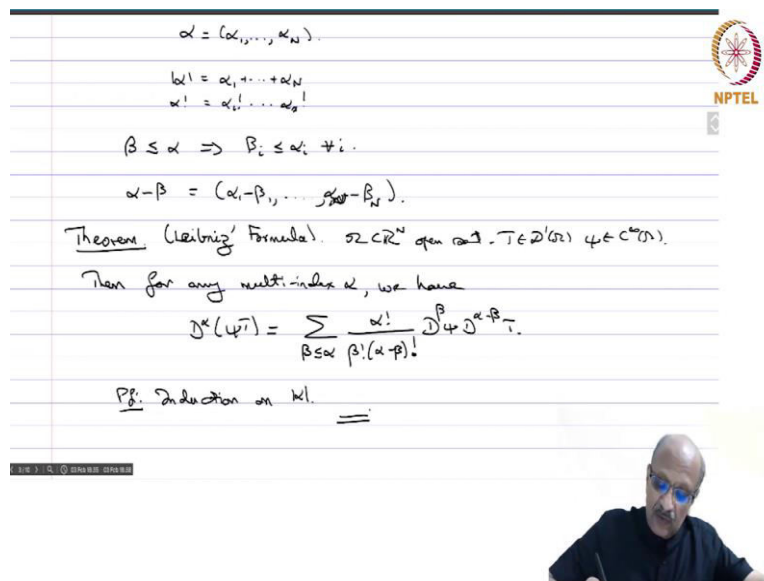 α = (α₁, ..., α_N).
|α| = α₁ + ... + α_N
α! = α₁! ... α_N!
NPTEL
β ≤ α ⇒ β_i ≤ α_i ∀i.
α-β = (α₁-β₁, ..., α_N-β_N).
Theorem. (Leibniz' Formula). Ω⊂ℝ^N open set. T∈D'(Ω) ψ∈C^∞(Ω).
Then for any multi-index α, we have
D^α(ψT) = Σ_{β≤α} α!/(β!(α-β)!) D^βψ D^{α-β}T.
Pf: Induction on |α|.